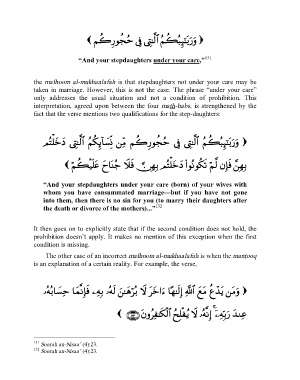 ﴿ وَرَبَـٰٓئِبُكُمُ ٱلَّـٰتِى فِى حُجُورِكُم ﴾
“And your stepdaughters under your care,”¹⁵¹
the mafhoom al-mukhaalafah is that stepdaughters not under your care may be
taken in marriage. However, this is not the case. The phrase “under your care”
only addresses the usual situation and not a condition of prohibition. This
interpretation, agreed upon between the four math-habs, is strengthened by the
fact that the verse mentions two qualifications for the step-daughters:
﴿ وَرَبَـٰٓئِبُكُمُ ٱلَّـٰتِى فِى حُجُورِكُم مِّن نِّسَآئِكُمُ ٱلَّـٰتِى دَخَلْتُم
بِهِنَّ فَإِن لَّمْ تَكُونُوا۟ دَخَلْتُم بِهِنَّ فَلَا جُنَاحَ عَلَيْكُمْ ﴾
“And your stepdaughters under your care (born) of your wives with
whom you have consummated marriage—but if you have not gone
into them, then there is no sin for you (to marry their daughters after
the death or divorce of the mothers)...”¹⁵²
It then goes on to explicitly state that if the second condition does not hold, the
prohibition doesn't apply. It makes no mention of this exception when the first
condition is missing.
The other case of an incorrect mafhoom al-mukhaalafah is when the mantooq
is an explanation of a certain reality. For example, the verse,
﴿ وَمَن يَدْعُ مَعَ ٱللَّهِ إِلَـٰهًا ءَاخَرَ لَا بُرْهَـٰنَ لَهُۥ بِهِۦ فَإِنَّمَا حِسَابُهُۥ
عِندَ رَبِّهِۦٓ ۚ إِنَّهُۥ لَا يُفْلِحُ ٱلْكَـٰفِرُونَ ﴾
¹⁵¹ Soorah an-Nisaa' (4):23.
¹⁵² Soorah an-Nisaa' (4):23.